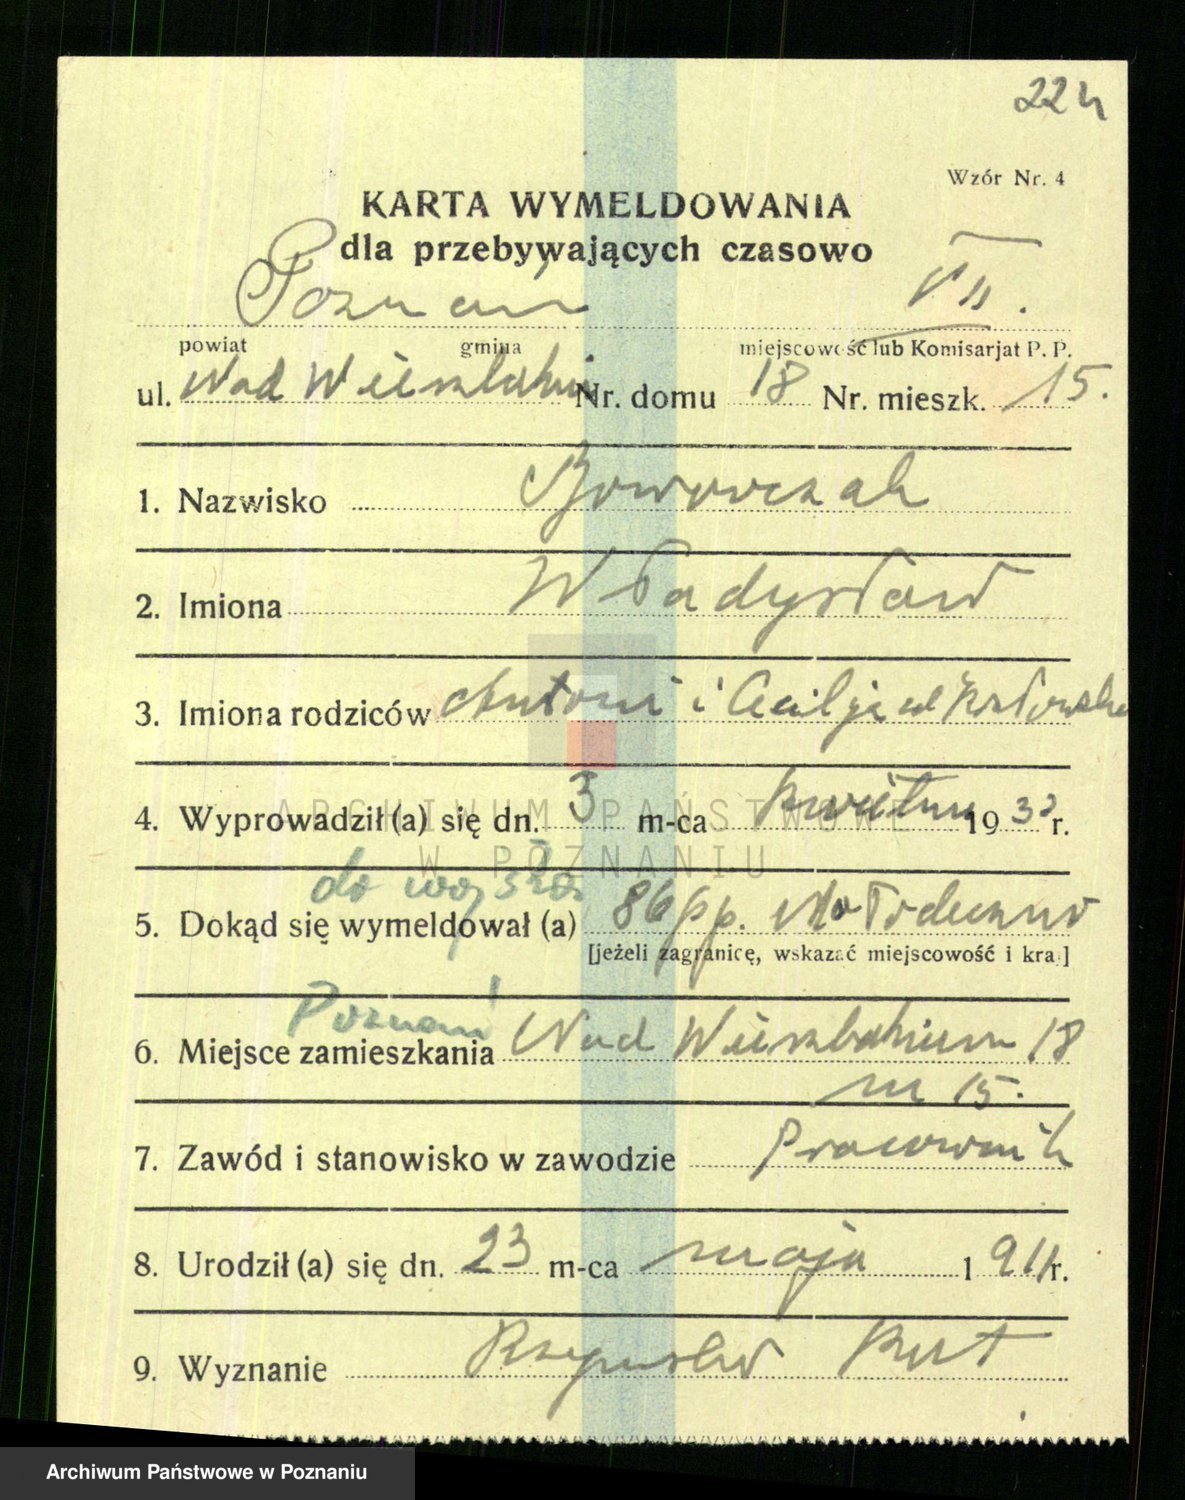 22
Wzór Nr. 4
KARTA WYMELDOWANIA
dla przebywających czasowo
Poznań VII.
powiat gmina miejscowość lub Komisarjat P. P.
ul. Nad Wierzbakiem Nr. domu 18 Nr. mieszk. 15.
1. Nazwisko
2. Imiona Władysław
3. Imiona rodziców Antoni i Cecilja
ARCHIWUM PAŃSTWOWE
W POZNANIU
4. Wyprowadził (a) się dn. 3 m-ca kwietnia 1932 r.
do wojska
5. Dokąd się wymeldował (a) 86 pp. Mołodeczno
[jeżeli zagranicę, wskazać miejscowość i kraj]
Poznań
6. Miejsce zamieszkania Nad Wierzbakiem 18
m 15.
7. Zawód i stanowisko w zawodzie Pracownik
8. Urodził (a) się dn. 23 m-ca maja 1911 r.
9. Wyznanie Rzymsko Kat
Archiwum Państwowe w Poznaniu